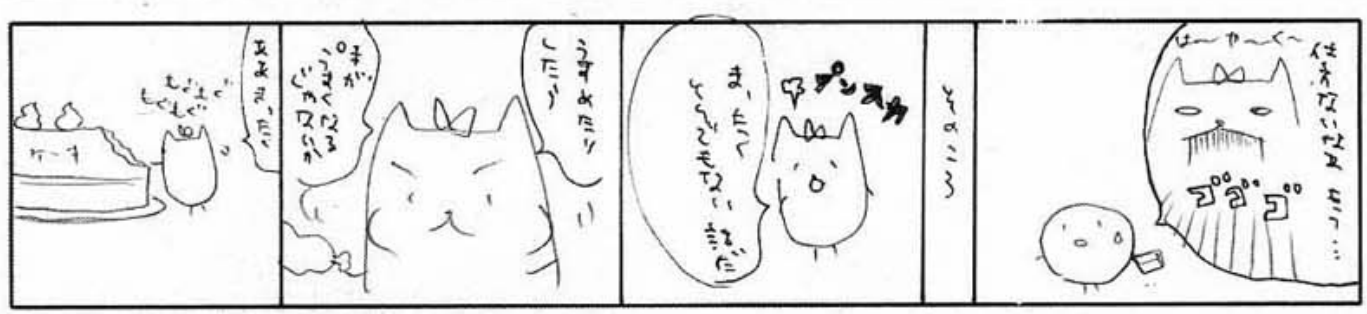 は〜や〜く〜
仕方ないなぁ もう…
ゴゴゴ
そのころ
プンスカ
まったく
とんでもない話だ
うすめたり
したら
味が
うすくなる
じゃないか
もぐもぐ
もぐもぐ
ケーキ